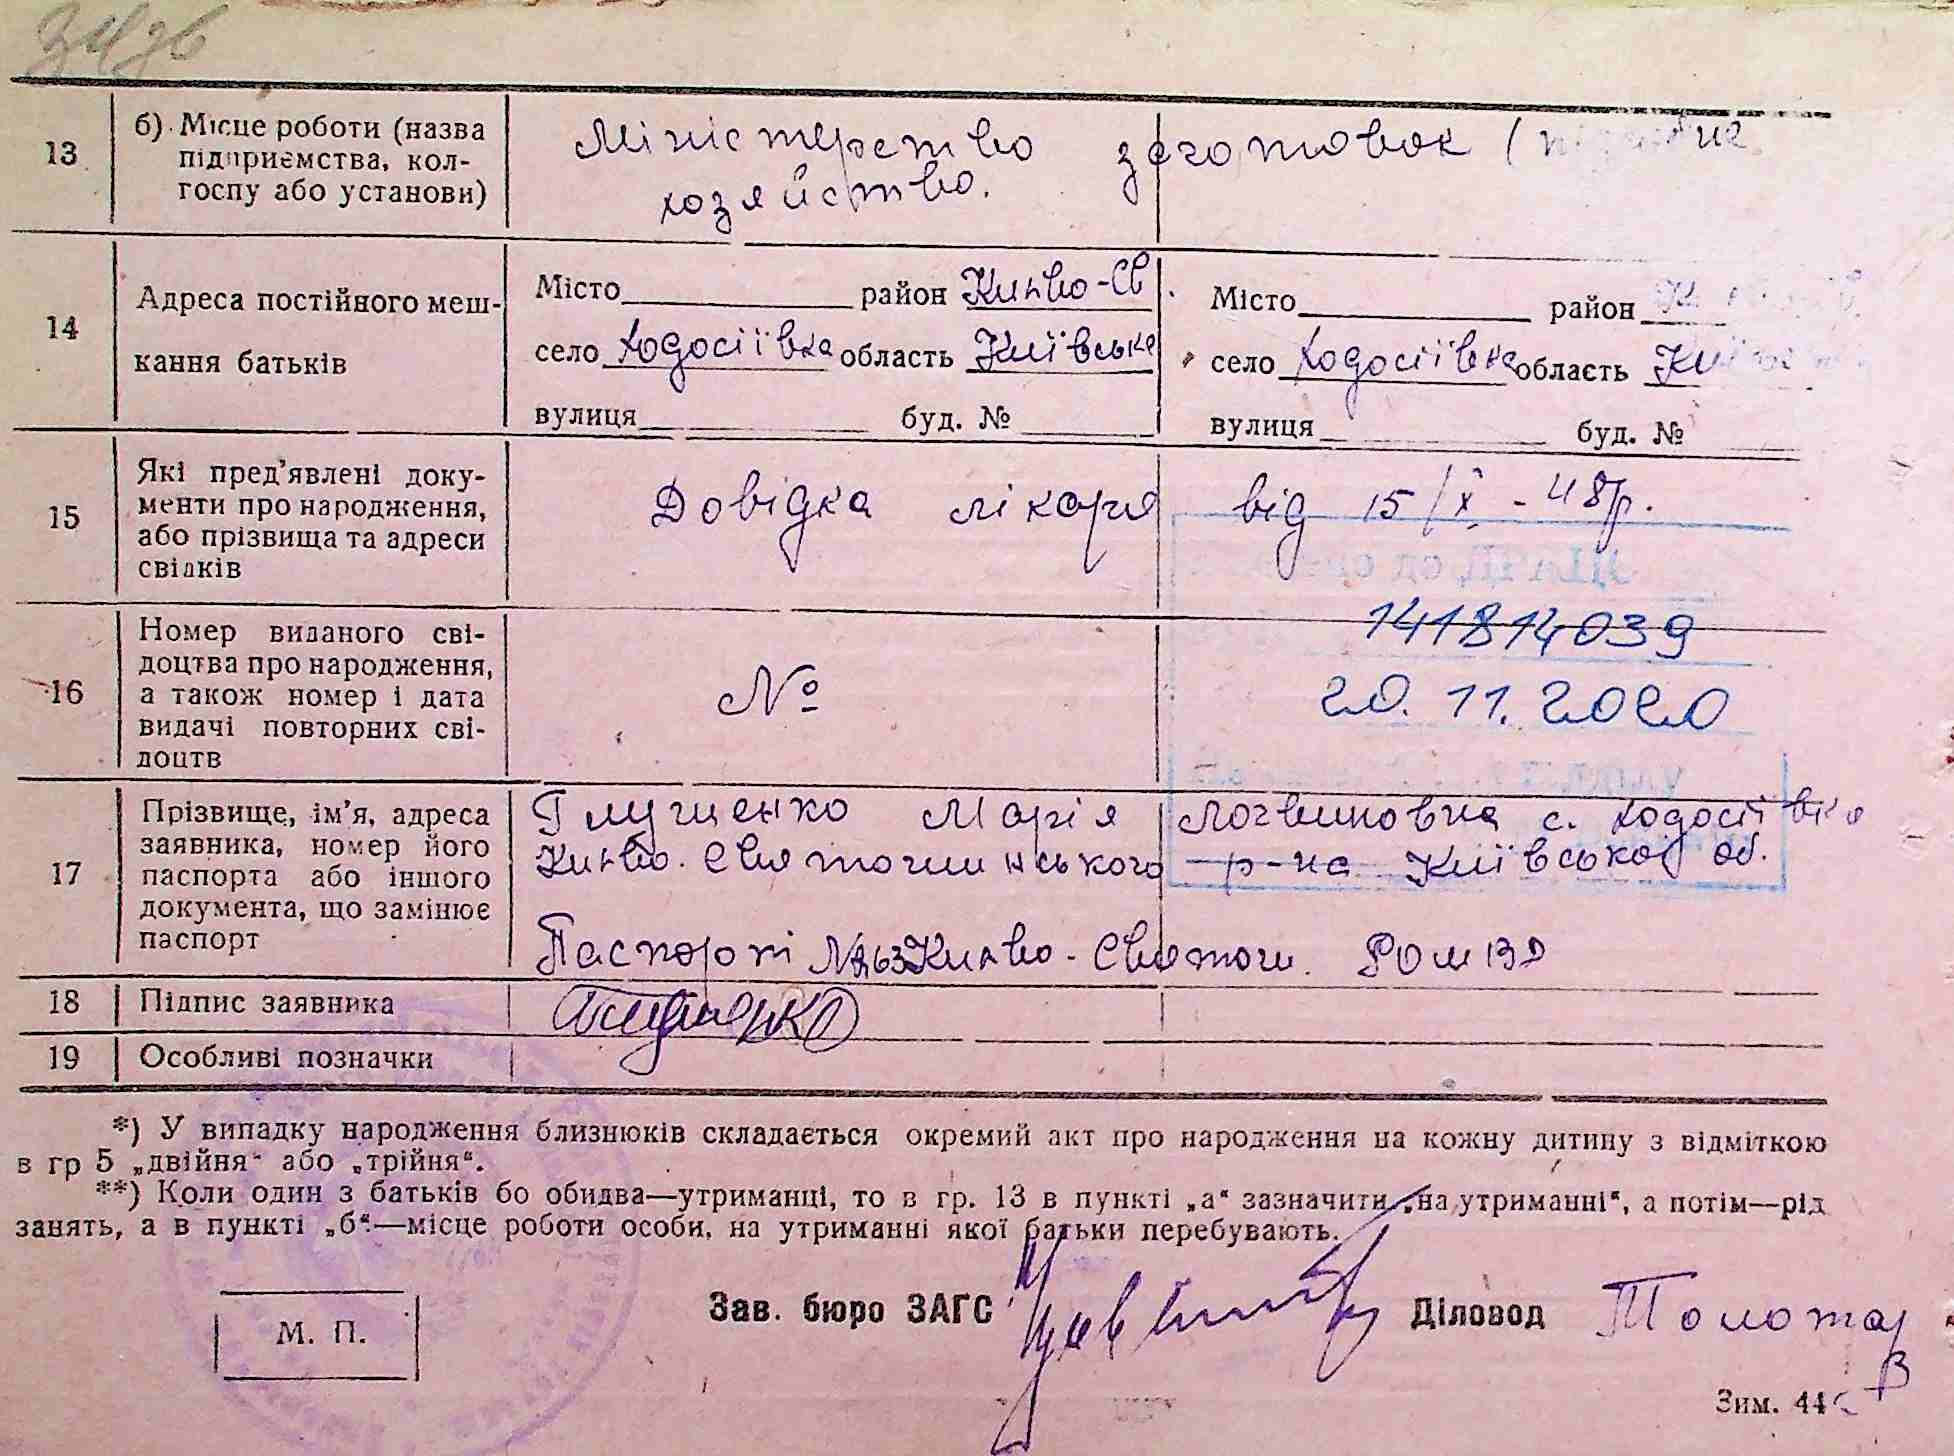 13
б) Місце роботи (назва
підприємства, кол-
госпу або установи)
Міністерство заготовок (
хозяйство.
14
Адреса постійного меш-
кання батьків
Місто район Києво-Св.
село Ходосіївка область Київська
вулиця буд. №
Місто район
село Ходосіївка область
вулиця буд. №
15
Які пред'явлені доку-
менти про народження,
або прізвища та адреси
свідків
Довідка лікаря від 15/X - 48р.
16
Номер виданого сві-
доцтва про народження,
а також номер і дата
видачі повторних сві-
доцтв
№
141814039
20.11.2020
17
Прізвище, ім'я, адреса
заявника, номер його
паспорта або іншого
документа, що замінює
паспорт
Глущенко Марія Логвиновна с. Ходосіївка
Києво-Святошинського р-на Київської об.
Паспорт Києво-Святош.
18
Підпис заявника
19
Особливі позначки
*) У випадку народження близнюків складається окремий акт про народження на кожну дитину з відміткою
в гр 5 „двійня“ або „трійня“.
**) Коли один з батьків бо обидва—утриманці, то в гр. 13 в пункті „а“ зазначити „на утриманні“, а потім—рід
занять, а в пункті „б“—місце роботи особи, на утриманні якої батьки перебувають.
М. П.
Зав. бюро ЗАГС
Діловод
Зим. 44